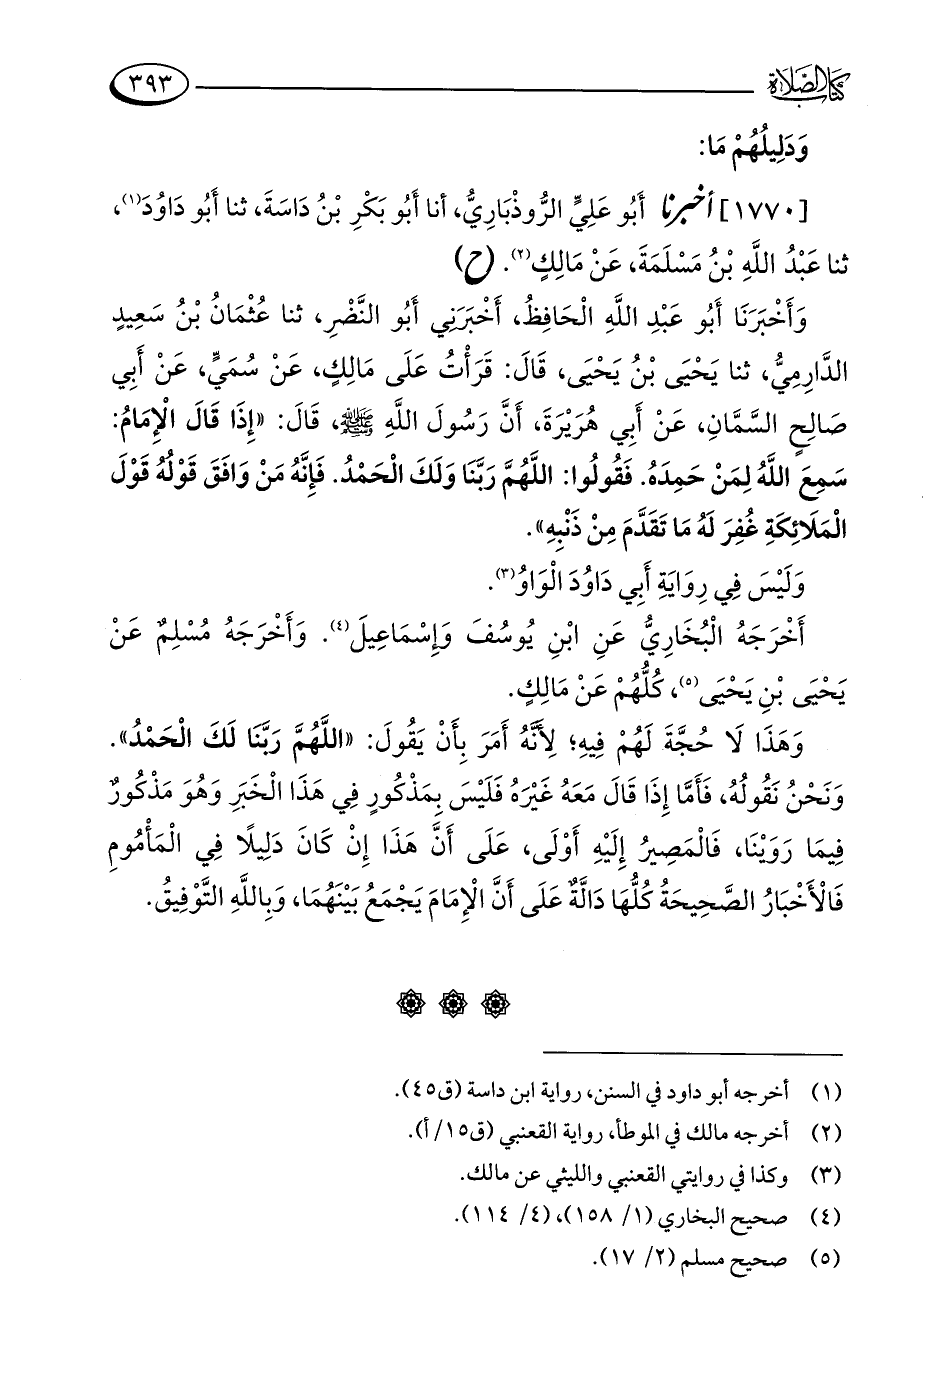 كتاب الصلاة
٣٩٣
وَدَلِيلُهُمْ مَا:
[١٧٧٠] أخبرنا أَبُو عَلِيٍّ الرُّوذْبَارِيُّ، أنا أَبُو بَكْرِ بْنُ دَاسَةَ، ثنا أَبُو دَاوُدَ(١)،
ثنا عَبْدُ اللَّهِ بْنُ مَسْلَمَةَ، عَنْ مَالِكٍ(٢). (ح)
وَأَخْبَرَنَا أَبُو عَبْدِ اللَّهِ الْحَافِظُ، أَخْبَرَنِي أَبُو النَّضْرِ، ثنا عُثْمَانُ بْنُ سَعِيدٍ
الدَّارِمِيُّ، ثنا يَحْيَى بْنُ يَحْيَى، قَالَ: قَرَأْتُ عَلَى مَالِكٍ، عَنْ سُمَيٍّ، عَنْ أَبِي
صَالِحٍ السَّمَّانِ، عَنْ أَبِي هُرَيْرَةَ، أَنَّ رَسُولَ اللَّهِ ﷺ، قَالَ: «إِذَا قَالَ الْإِمَامُ:
سَمِعَ اللَّهُ لِمَنْ حَمِدَهُ. فَقُولُوا: اللَّهُمَّ رَبَّنَا وَلَكَ الْحَمْدُ. فَإِنَّهُ مَنْ وَافَقَ قَوْلُهُ قَوْلَ
الْمَلَائِكَةِ غُفِرَ لَهُ مَا تَقَدَّمَ مِنْ ذَنْبِهِ».
وَلَيْسَ فِي رِوَايَةِ أَبِي دَاوُدَ الْوَاوُ(٣).
أَخْرَجَهُ الْبُخَارِيُّ عَنِ ابْنِ يُوسُفَ وَإِسْمَاعِيلَ(٤). وَأَخْرَجَهُ مُسْلِمٌ عَنْ
يَحْيَى بْنِ يَحْيَى(٥)، كُلُّهُمْ عَنْ مَالِكٍ.
وَهَذَا لَا حُجَّةَ لَهُمْ فِيهِ؛ لِأَنَّهُ أَمَرَ بِأَنْ يَقُولَ: «اللَّهُمَّ رَبَّنَا لَكَ الْحَمْدُ».
وَنَحْنُ نَقُولُهُ، فَأَمَّا إِذَا قَالَ مَعَهُ غَيْرَهُ فَلَيْسَ بِمَذْكُورٍ فِي هَذَا الْخَبَرِ وَهُوَ مَذْكُورٌ
فِيمَا رَوَيْنَا، فَالْمَصِيرُ إِلَيْهِ أَوْلَى، عَلَى أَنَّ هَذَا إِنْ كَانَ دَلِيلًا فِي الْمَأْمُومِ
فَالْأَخْبَارُ الصَّحِيحَةُ كُلُّهَا دَالَّةٌ عَلَى أَنَّ الْإِمَامَ يَجْمَعُ بَيْنَهُمَا، وَبِاللَّهِ التَّوْفِيقُ.
(١) أخرجه أبو داود في السنن، رواية ابن داسة (ق٤٥).
(٢) أخرجه مالك في الموطأ، رواية القعنبي (ق١٥/ أ).
(٣) وكذا في روايتي القعنبي والليثي عن مالك.
(٤) صحيح البخاري (١/ ١٥٨)، (٤/ ١١٤).
(٥) صحيح مسلم (٢/ ١٧).